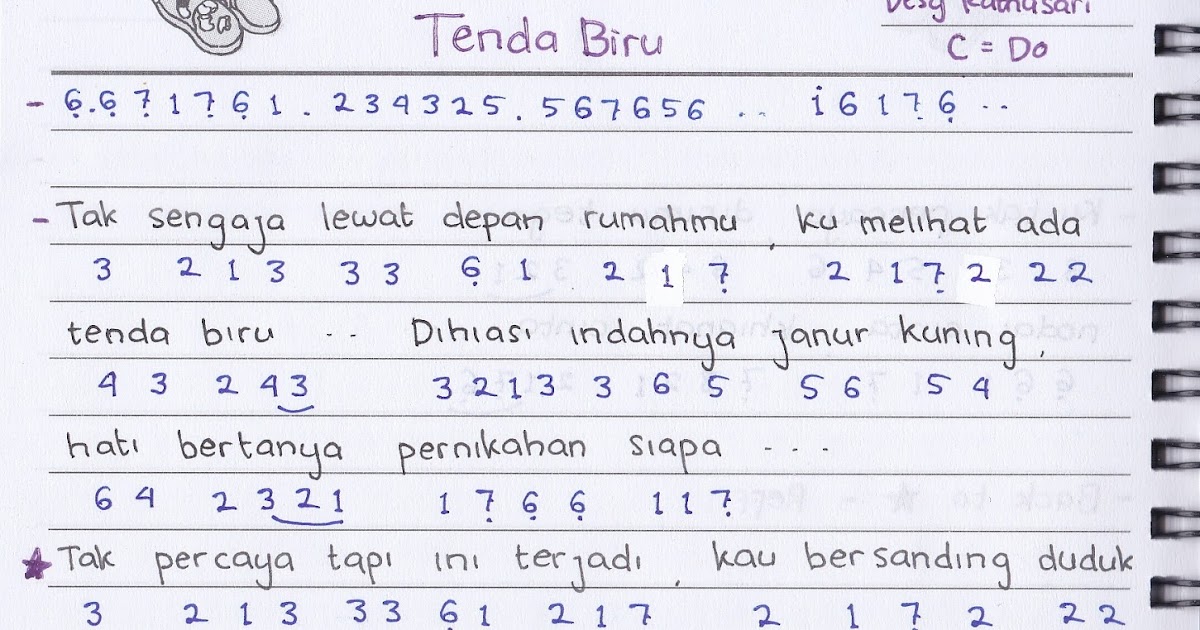 Desy Ratnasari
Tenda Biru
C = Do
- 6̣ . 6̣ 7̣ 1 7̣ 6̣ 1 . 2 3 4 3 2 5 . 5 6 7 6 5 6 .. i 6 1 7̣ 6̣ ..
- Tak sengaja lewat depan rumahmu, ku melihat ada
3 2 1 3 3 3 6̣ 1 2 1 7̣ 2 1 7̣ 2 2 2
tenda biru ... Dihiasi indahnya janur kuning,
4 3 2 4 3 3 2 1 3 3 6 5 5 6 5 4
hati bertanya pernikahan siapa ...
6 4 2 3 2 1 1 7̣ 6̣ 6̣ 1 1 7̣
★ Tak percaya tapi ini terjadi, kau bersanding duduk
3 2 1 3 3 3 6̣ 1 2 1 7 2 1 7̣ 2 2 2